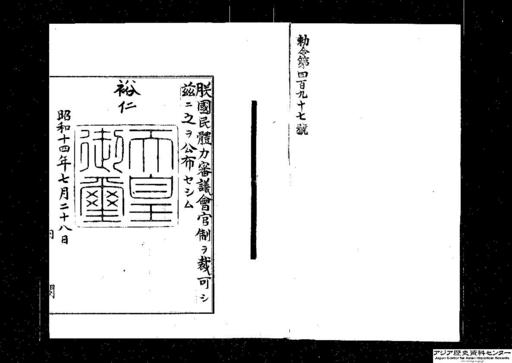 勅令第四百九十七號
朕國民體力審議會官制ヲ裁可シ
茲ニ之ヲ公布セシム
裕仁
天皇御璽
昭和十四年七月二十八日
内閣
アジア歴史資料センター
Japan Center for Asian Historical Records